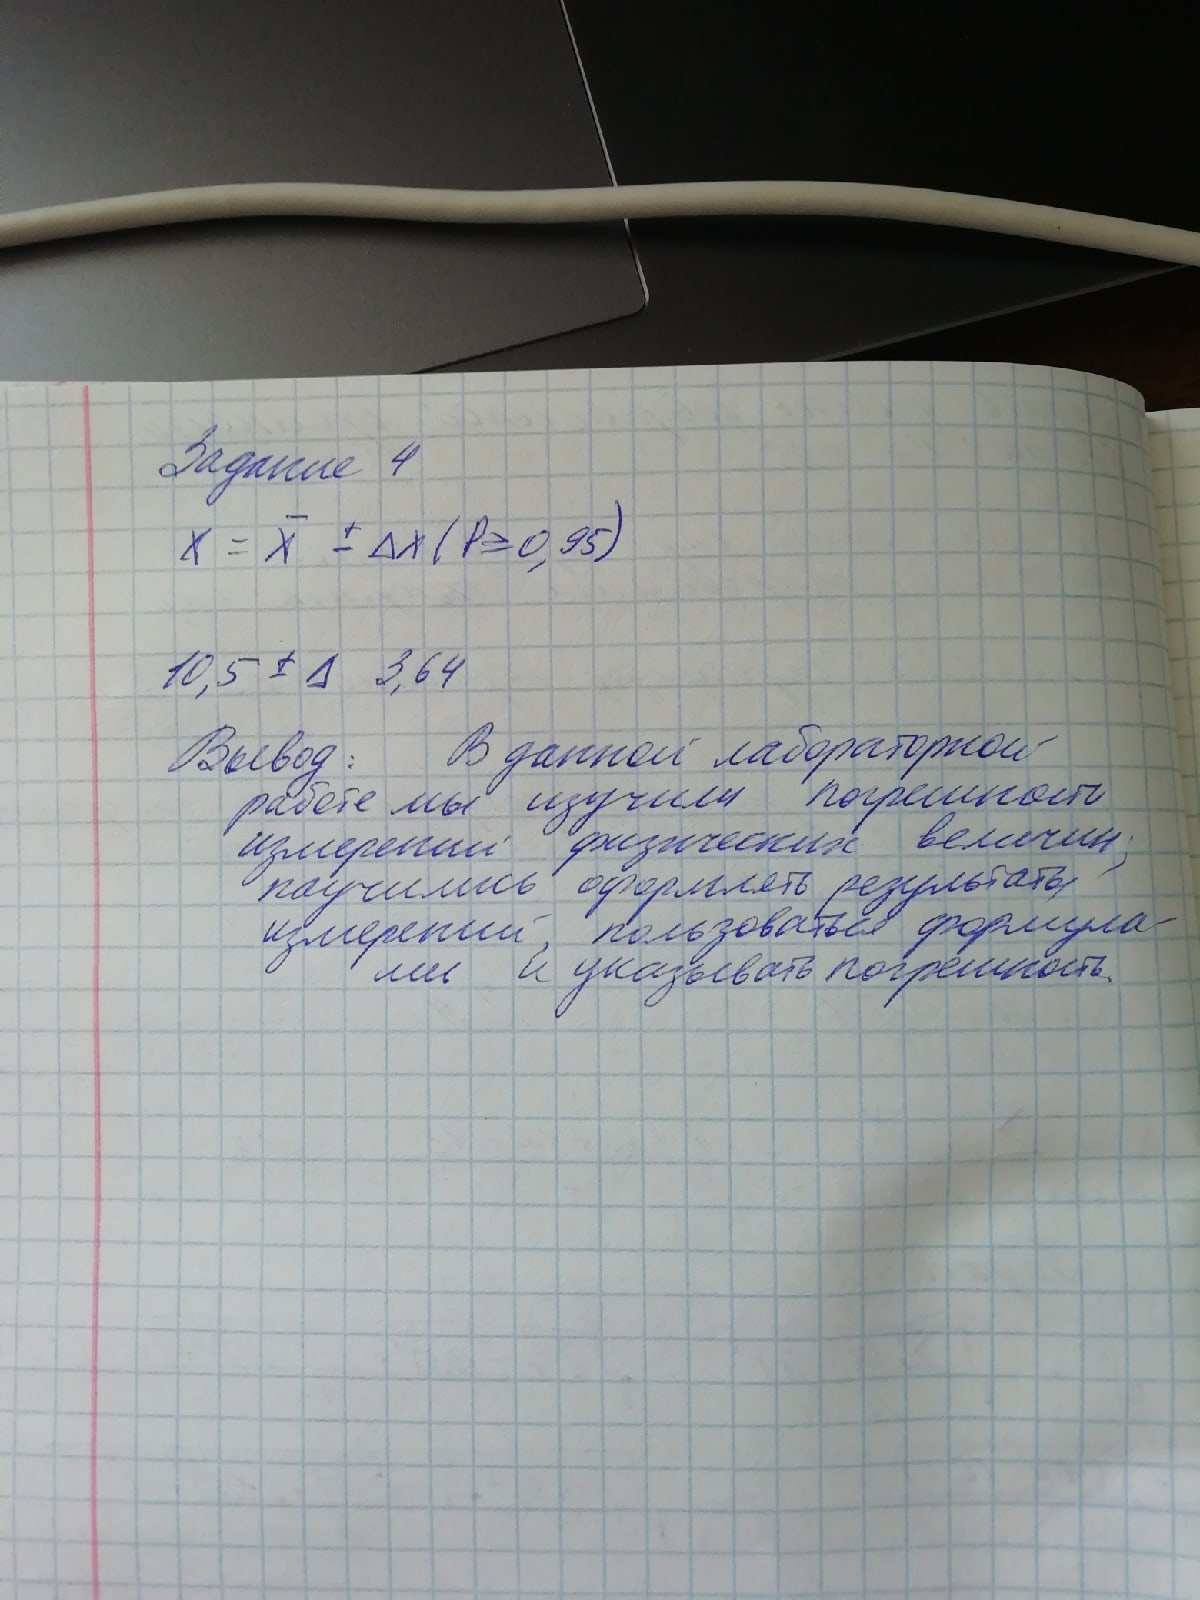 Задание 4
X = X̄ ± ΔX (P ≥ 0,95)
10,5 ± Δ 3,64
Вывод: В данной лабораторной
работе мы изучили погрешность
измерений физических величин;
научились оформлять результаты
измерений, пользоваться формула-
ми и указывать погрешность.